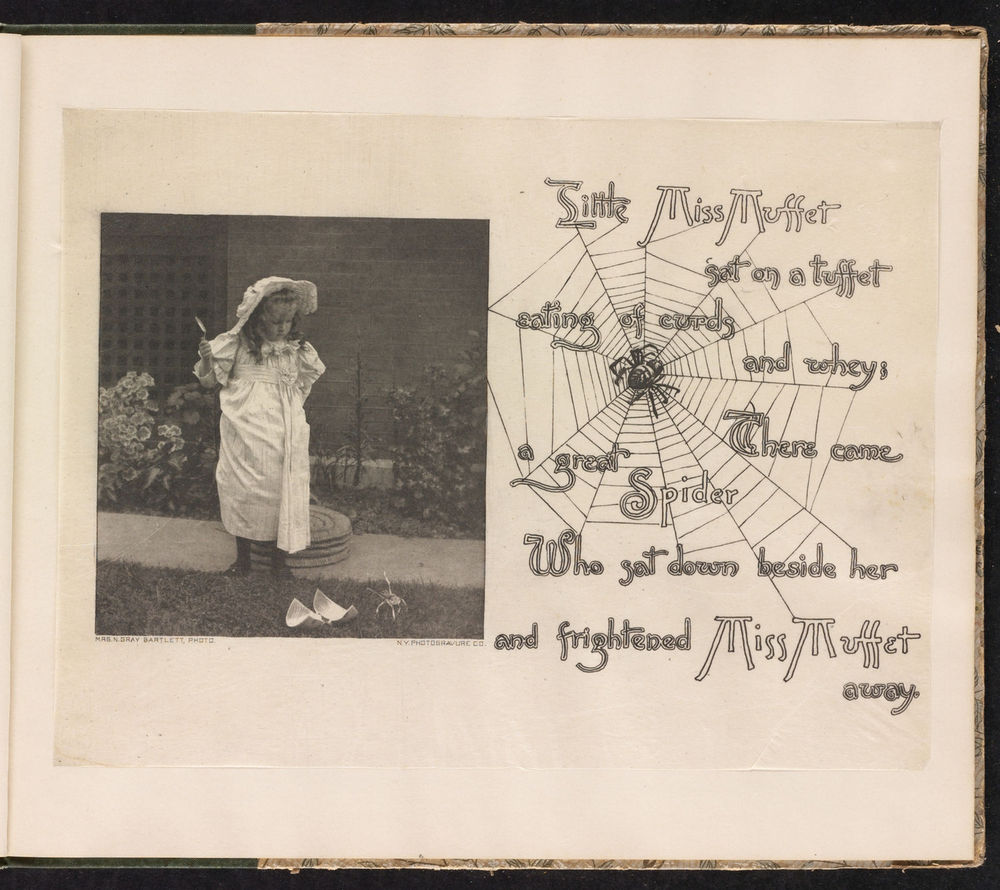 Little Miss Muffet
sat on a tuffet
eating of curds
and whey;
There came
a great
Spider
Who sat down beside her
and frightened Miss Muffet
away.
MRS. N. GRAY BARTLETT, PHOTO.
N.Y. PHOTOGRAVURE CO.